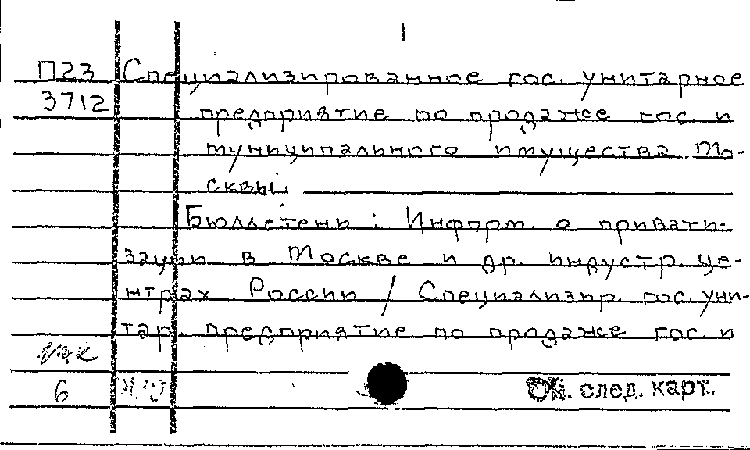 1
П23 Специализированное гос. унитарное
3712 предприятие по продаже гос. и
муниципального имущества Мо-
сквы.
Бюллетень : Информ. о привати-
зации в Москве и др. индустр. це-
нтрах России / Специализир. гос. уни-
тар. предприятие по продаже гос. и
мк
6 См. след. карт.